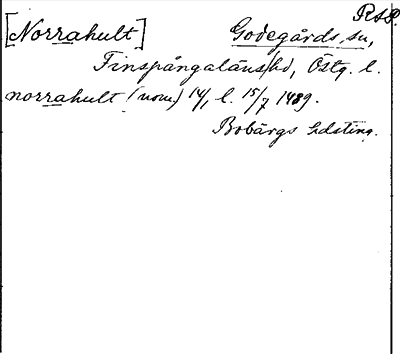 RAP.
[Norrahult] Godegårds sn,
Finspångaläns hd, Östg. l.
norrahult (nom.) 14/, l. 15/7 1489.
Bobärgs hdsting.